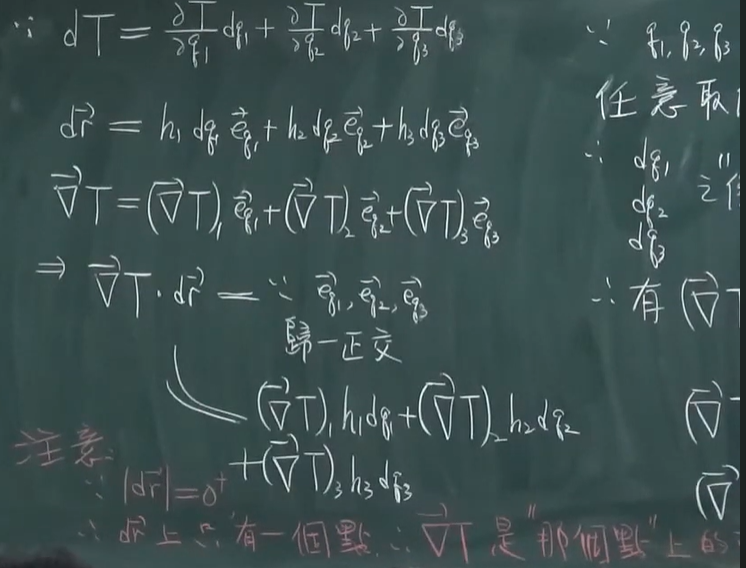 ∵ dT = ∂T/∂q₁ dq₁ + ∂T/∂q₂ dq₂ + ∂T/∂q₃ dq₃
d⃗r = h₁ dq₁ e⃗_q₁ + h₂ dq₂ e⃗_q₂ + h₃ dq₃ e⃗_q₃
∇⃗T = (∇⃗T)₁ e⃗_q₁ + (∇⃗T)₂ e⃗_q₂ + (∇⃗T)₃ e⃗_q₃
⇒ ∇⃗T · d⃗r = ∵ e⃗_q₁, e⃗_q₂, e⃗_q₃
歸一正交
(∇⃗T)₁ h₁ dq₁ + (∇⃗T)₂ h₂ dq₂
+ (∇⃗T)₃ h₃ dq₃
注意:
∵ |d⃗r| = 0⁺
∴ d⃗r 上只有一個點 ∴ ∇⃗T 是"那個點"上的
∵ q₁, q₂, q₃
任意取
∴ dq₁
dq₂
dq₃
之"
∴ 有 (∇⃗T
(∇⃗
(∇⃗